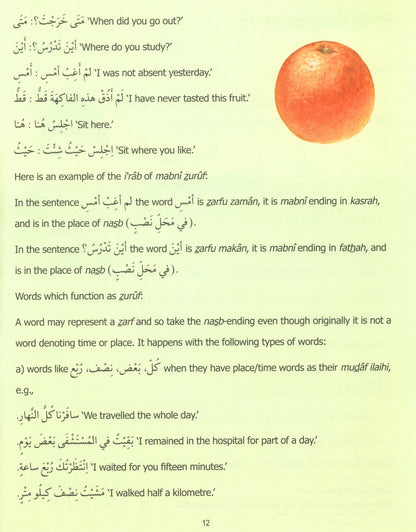 مَتَى خَرَجْتَ؟: مَتَى 'When did you go out?'
أَيْنَ تَدْرُسُ؟: أَيْنَ 'Where do you study?'
لَمْ أَغِبْ أَمْسِ : أَمْسِ 'I was not absent yesterday.'
لَمْ أَذُقْ هذِهِ الفَاكِهَةَ قَطُّ : قَطُّ 'I have never tasted this fruit.'
اِجْلِسْ هُنا : هُنا 'Sit here.'
اِجْلِسْ حَيْثُ شِئْتَ : حَيْثُ 'Sit where you like.'
Here is an example of the i'râb of mabnî ẓurûf:
In the sentence لم أغِبْ أَمْسِ the word أَمْسِ is ẓarfu zamân, it is mabnî ending in kasrah,
and is in the place of naṣb (فِي مَحَلِّ نَصْبٍ).
In the sentence أَيْنَ تَدْرُسُ؟ the word أَيْنَ is ẓarfu makân, it is mabnî ending in fatḥah, and
is in the place of naṣb (فِي مَحَلِّ نَصْبٍ).
Words which function as ẓurûf:
A word may represent a ẓarf and so take the naṣb-ending even though originally it is not a
word denoting time or place. It happens with the following types of words:
a) words like كُلّ، بَعْض، نِصْف، رُبْع when they have place/time words as their muḍâf ilaihi,
e.g.,
سافَرْنا كُلَّ النَّهارِ. 'We travelled the whole day.'
بَقِيْتُ في المُسْتَشْفَى بَعْضَ يَوْمٍ. 'I remained in the hospital for part of a day.'
اِنْتَظَرْتُكَ رُبْعَ ساعةٍ. 'I waited for you fifteen minutes.'
مَشَيْتُ نِصْفَ كِيلُو مِتْرٍ. 'I walked half a kilometre.'
12